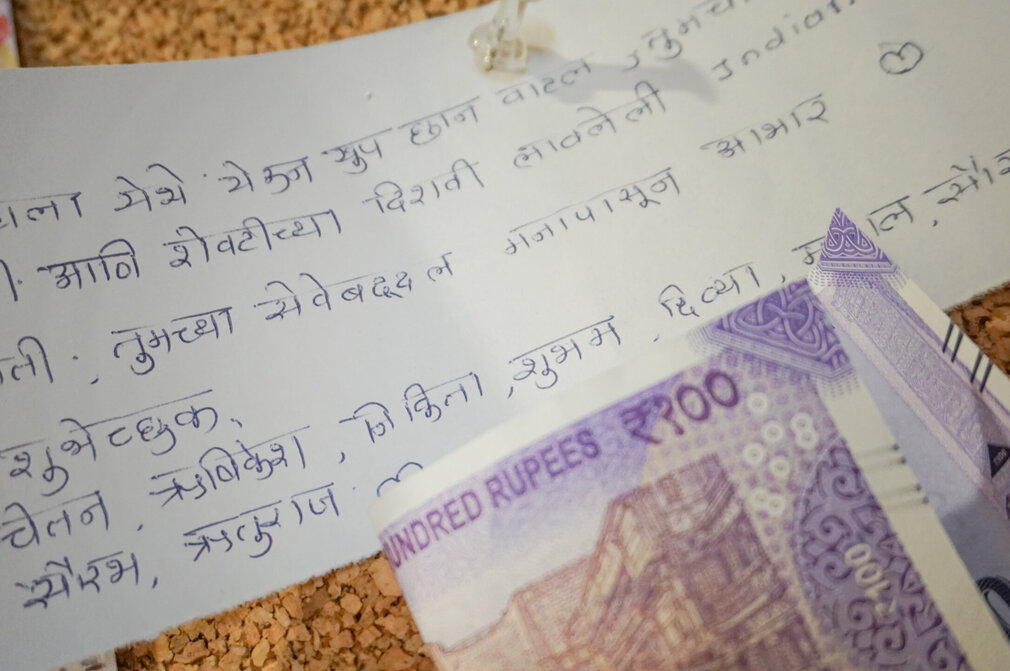 येथे येऊन खुप छान वाटल, तुमच
आणि शेवटीच्या दिशवी लावलेली Indian
तुमच्या सेवेबद्दल मनापासून आभार
शुभेच्छुक,
चेतन, ऋषिकेश, निकिता, शुभम, दिव्या,
सौरभ, ऋतुराज
UNDRED RUPEES ₹१००
₹100